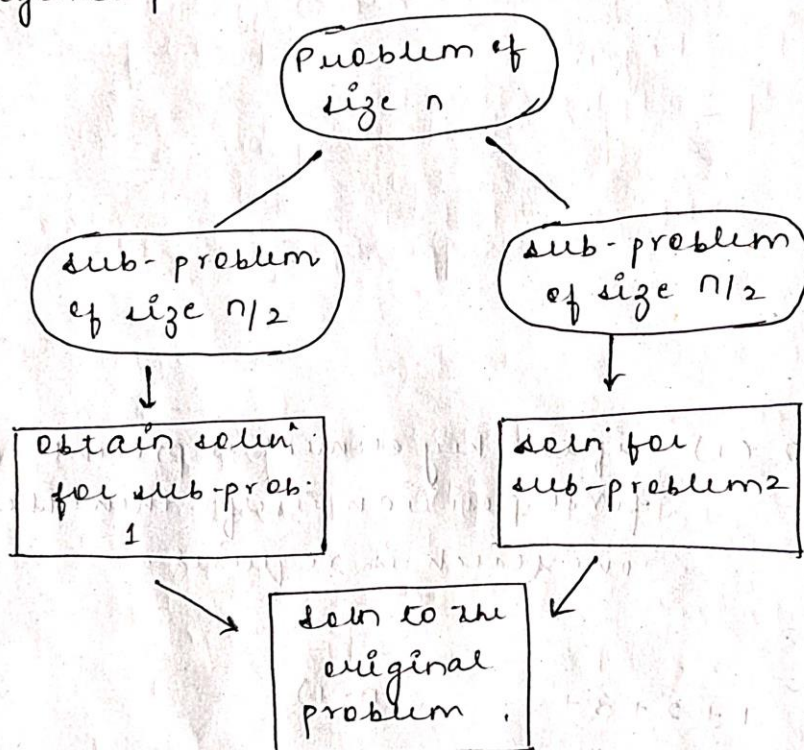 Problem of
size n
sub-problem
of size n/2
sub-problem
of size n/2
obtain soln
for sub-prob.
1
soln for
sub-problem 2
soln to the
original
problem.